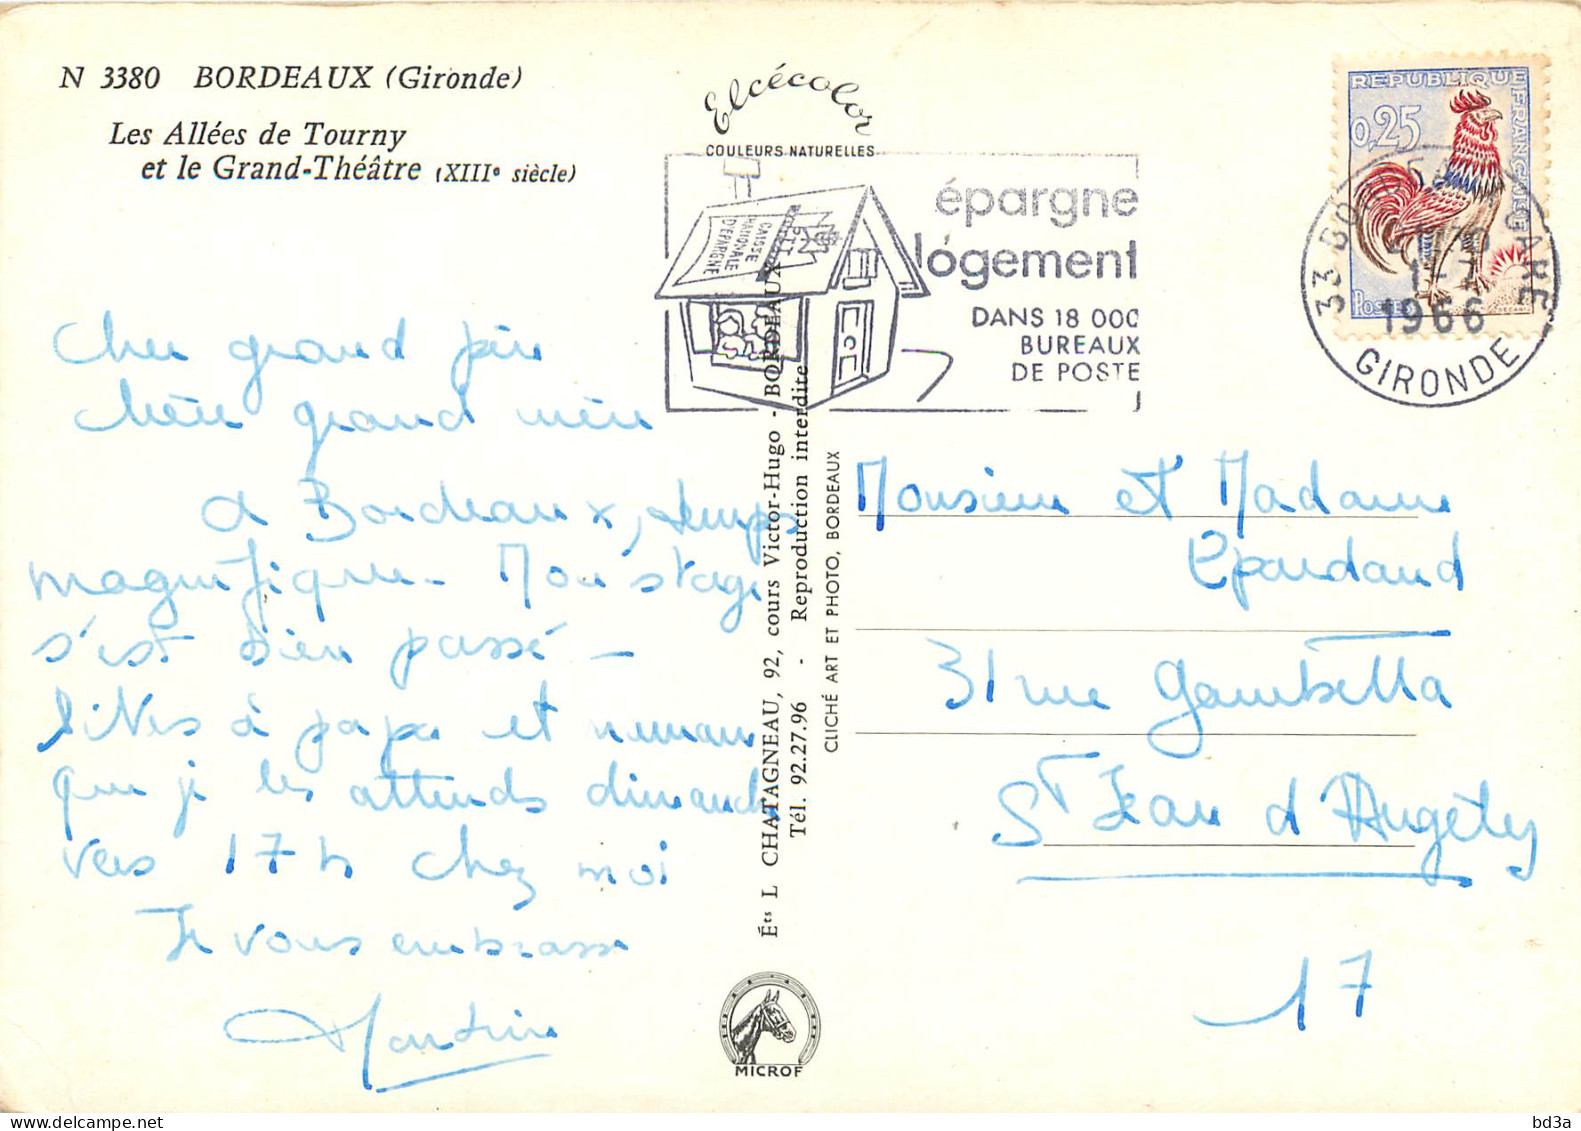 N 3380 BORDEAUX (Gironde)
Les Allées de Tourny
et le Grand-Théâtre (XIIIe siècle)
Elcécolor
COULEURS NATURELLES
CAISSE
NATIONALE
D'ÉPARGNE
PTT
épargne
logement
DANS 18 000
BUREAUX
DE POSTE
REPUBLIQUE FRANÇAISE
0,25
POSTES
33 BORDEAUX GARE
1-7
1966
GIRONDE
Cher grand père
Chère grand mère
A Bordeaux, temps
magnifique. Mon stage
s'est bien passé -
Dites à papa et maman
que je les attends dimanche
vers 17 h chez moi
Je vous embrasse
Éts L CHATAGNEAU, 92, cours Victor-Hugo - BORDEAUX
Tél. 92.27.96 - Reproduction interdite
CLICHÉ ART ET PHOTO, BORDEAUX
MICROF
Monsieur et Madame
31 rue Gambetta
St Jean d'Angély
17
bd3a